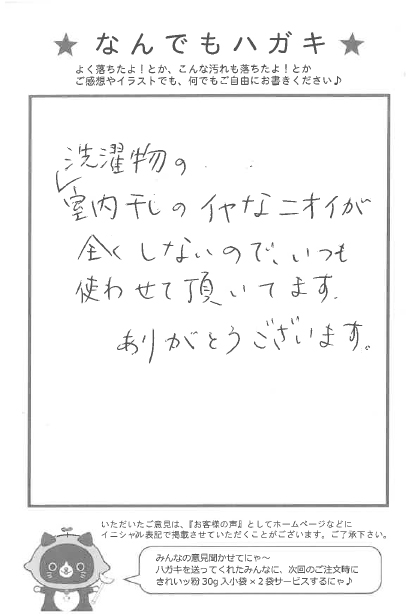 ★ なんでもハガキ ★
よく落ちたよ！とか、こんな汚れも落ちたよ！とか
ご感想やイラストでも、何でもご自由にお書きください♪
洗濯物の
室内干しのイヤなニオイが
全くしないので、いつも
使わせて頂いてます。
ありがとうございます。
いただいたご意見は、『お客様の声』としてホームページなどに
イニシャル表記で掲載させていただくことがございます。ご了承下さい。
みんなの意見聞かせてにゃ～
ハガキを送ってくれたみんなに、次回のご注文時に
きれいッ粉30g入小袋×2袋サービスするにゃ♪